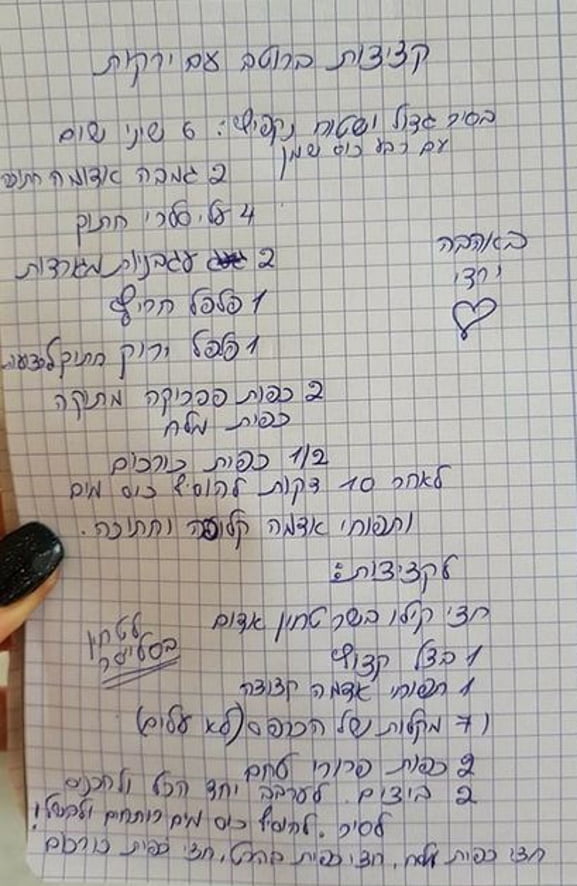 קציצות ברוטב עם ירקות
בסיר גדול ושטוח נקפיץ: 6 שיני שום
עם רבע כוס שמן
2 גמבה אדומה חתוכ
4 עלי סלרי חתוך
2 עגבניות מגוררות
1 פלפל חריף
1 פלפל ירוק חתוך לרצועות
2 כפות פפריקה מתוקה
כפית מלח
1/2 כפית כורכום
לאחר 10 דקות להוסיף כוס מים
ותפוחי אדמה קלופה וחתוכה.
באהבה
ירדי
לקציצות:
חצי קילו בשר טחון אדום
1 בצל קצוץ
1 תפוחי אדמה קצוצה
ו 7 מקלות של הכרפס (לא עלים)
לטחון
בסלייסר
2 כפות פרורי לחם
2 ביצים. לערבב יחד הכל ולהכניס
לסיר. להוסיף כוס מים רותחים ולבשל!
חצי כפית מלח, חצי כפית בהרט, חצי כפית כורכום